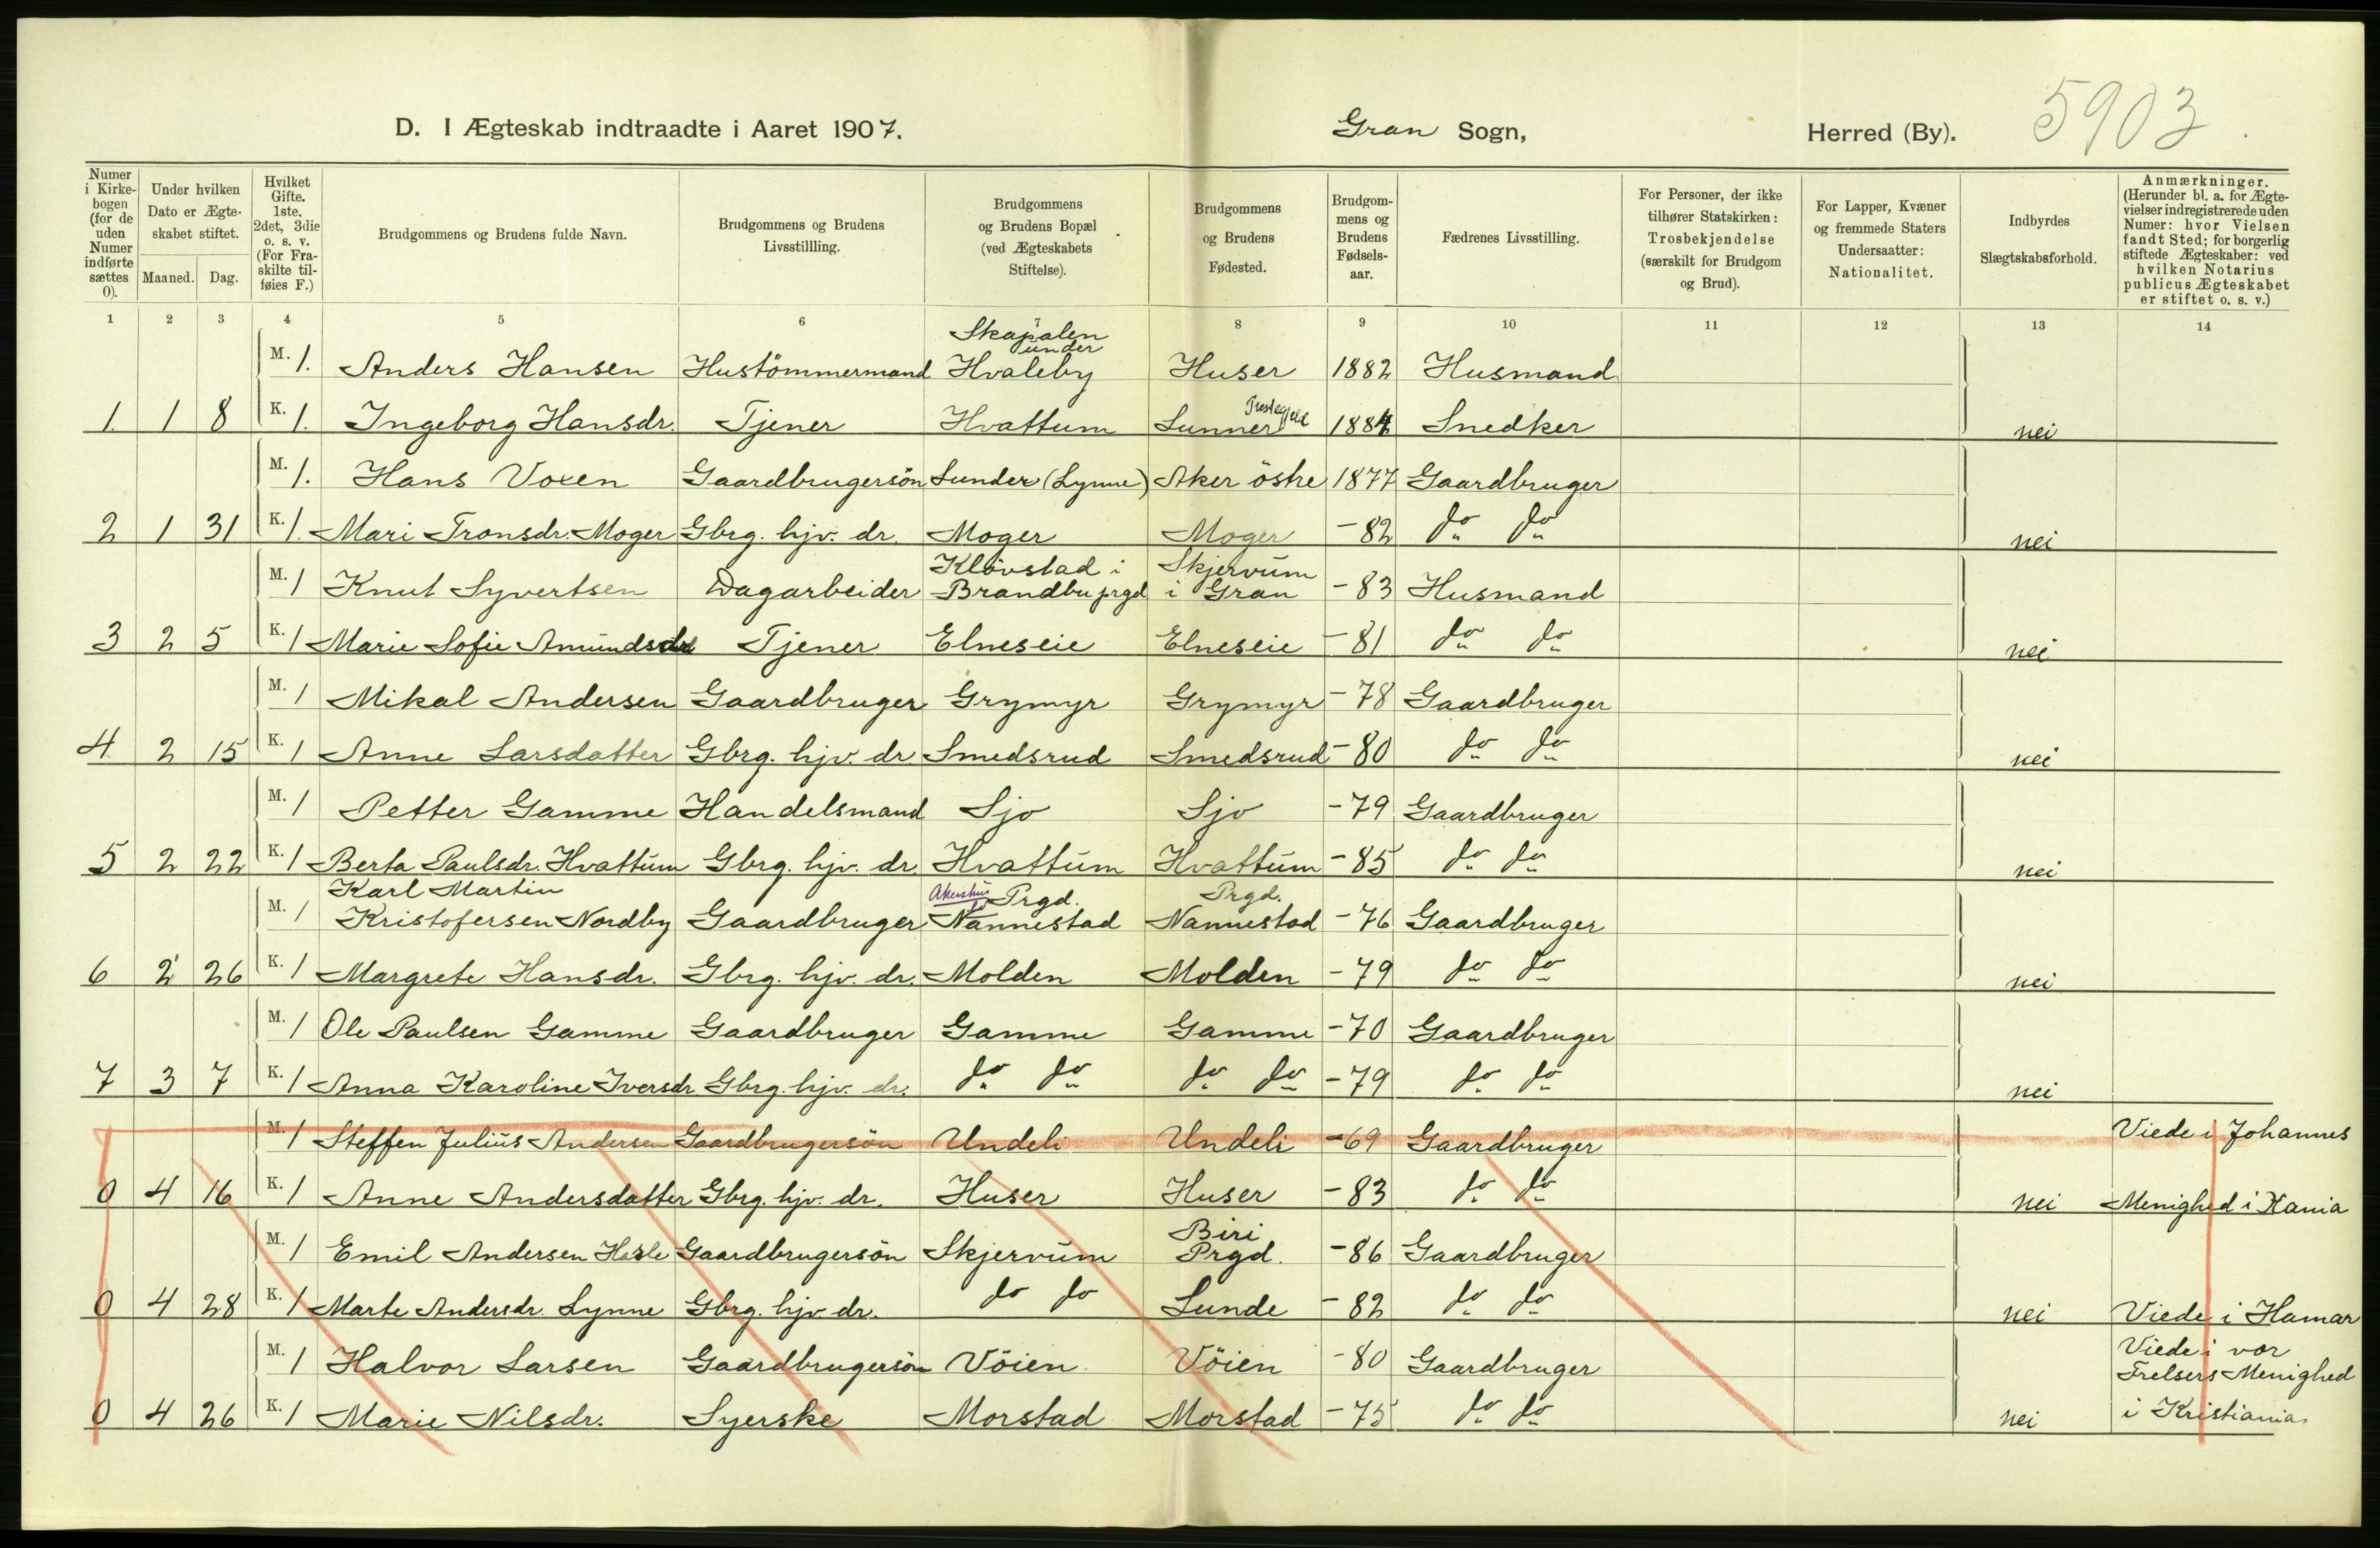 D. I Ægteskab indtraadte i Aaret 1907. Gran Sogn, Herred (By). 5903
Numer i Kirkebogen (for de uden Numer indførte sættes 0).
Under hvilken Dato er Ægteskabet stiftet.
Maaned. Dag.
Hvilket Gifte. 1ste, 2det, 3die o. s. v. (For Fraskilte tilføies F.)
Brudgommens og Brudens fulde Navn.
Brudgommens og Brudens Livsstillling.
Brudgommens og Brudens Bopæl (ved Ægteskabets Stiftelse).
Brudgommens og Brudens Fødested.
Brudgommens og Brudens Fødselsaar.
Fædrenes Livsstilling.
For Personer, der ikke tilhører Statskirken: Trosbekjendelse (særskilt for Brudgom og Brud).
For Lapper, Kvæner og fremmede Staters Undersaatter: Nationalitet.
Indbyrdes Slægtskabsforhold.
Anmærkninger. (Herunder bl. a. for Ægtevielser indregistrerede uden Numer: hvor Vielsen fandt Sted; for borgerlig stiftede Ægteskaber: ved hvilken Notarius publicus Ægteskabet er stiftet o. s. v.)
1 2 3 4 5 6 7 8 9 10 11 12 13 14
M. 1. Anders Hansen Hustömmermand Skapalen under Hvaleby Huser 1882 Husmand
1. 1 8 K. 1. Ingeborg Hansdr. Tjener Hvattum Lunner Prestegjeld 1884 Snedker nei
M. 1. Hans Voxen Gaardbrugersön Lunder (Lynne) Aker östre 1877 Gaardbruger
2 1 31 K. 1. Mari Tronsdr. Moger Gbrg. hjv. dr. Moger Moger -82 do do nei
M. 1 Knut Syvertsen Dagarbeider Klövstad i Brandbu prgd Skjervum i Gran -83 Husmand
3 2 5 K. 1 Marie Sofie Amundsdr Tjener Elneseie Elneseie -81 do do nei
M. 1 Mikal Andersen Gaardbruger Grymyr Grymyr -78 Gaardbruger
4. 2 15 K. 1 Anne Larsdatter Gbrg. hjv. dr Smedsrud Smedsrud -80 do do nei
M. 1 Petter Gamme Handelsmand Sjo Sjo -79 Gaardbruger
5 2 22 K. 1 Berta Paulsdr. Hvattum Gbrg. hjv. dr Hvattum Hvattum -85 do do nei
M. 1 Karl Martin Kristofersen Nordby Gaardbruger Akershus Prgd. Nannestad Prgd. Nannestad -76 Gaardbruger
6 2 26 K. 1 Margrete Hansdr. Gbrg. hjv. dr. Molden Molden -79 do do nei
M. 1 Ole Paulsen Gamme Gaardbruger Gamme Gamme -70 Gaardbruger
7 3 7 K. 1 Anna Karoline Iversdr Gbrg. hjv. dr. do do do do -79 do do nei
M. 1 Steffen Julius Andersen Gaardbrugersön Undeli Undeli -69 Gaardbruger Viede i Johannes
0 4 16 K. 1 Anne Andersdatter Gbrg. hjv. dr. Huser Huser -83 do do nei Menighed i Kania
M. 1 Emil Andersen Hasle Gaardbrugersön Skjervum Biri Prgd. -86 Gaardbruger
0 4 28 K. 1 Marte Andersdr. Lynne Gbrg. hjv. dr. do do Lunde -82 do do nei Viede i Hamar
M. 1 Halvor Larsen Gaardbrugersön Vöien Vöien -80 Gaardbruger Viede i vor Frelsers Menighed
0 4 26 K. 1 Marie Nilsdr. Syerske Morstad Morstad -75 do do nei i Kristiania.